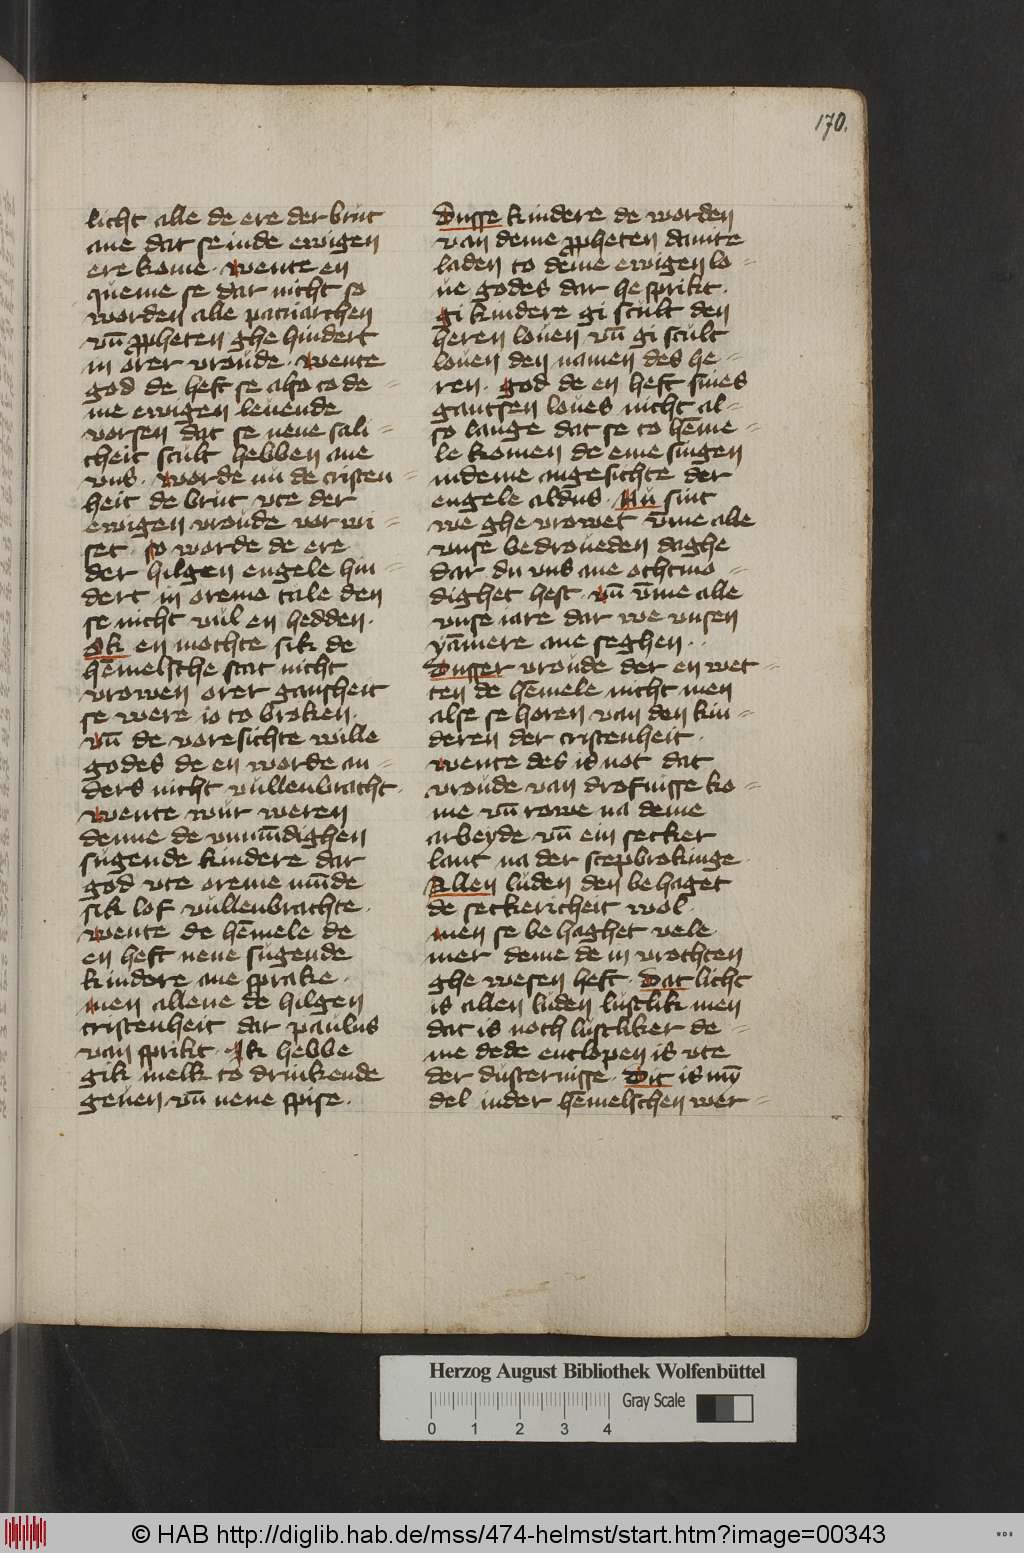 170.
licht alle de ere der brut
ane dat se in de ewigen
ere kome · wente en
queme se dar nicht so
worden alle patriarchen
vn̄ ꝓpheten ghe hindert
in orer vroude · wente
god de heft se also to de-
me ewigen leuende
vorsen dat se nene sali-
cheit scult hebben ane
vns · worde nu de cristen-
heit de brut vte der
ewigen vroude vor wi-
set · so worde de ere
der hilgen engele hin-
dert in oreme tale den
se nicht vul en hedden ·
Ok en mochte sik de
hēmelsche stat nicht
vrowen orer gantheit
se were io to broken ·
vn̄ de voresichte wille
godes de en worde an-
ders nicht vullenbracht ·
wente wur weren
denne de vnmūdighen
sugende kindere dar
god vte oreme mūde
sik lof vullenbrachte ·
wente de hēmele de
en heft nene sugende
kindere ane sprake ·
men allene de hilgen
cristenheit dar paulus
van sprikt · Ik hebbe
gik melk to drinkende
geuen vn̄ nene spise ·
Dusse kindere de worden
van deme ꝓpheten dauite
laden to deme ewigen lo-
ue godes dar he sprikt ·
gi kindere gi scult den
heren louen vn̄ gi scult
louen den namen des he-
ren · god de en heft sines
gantsen loues nicht al-
so lange dat se to hēme-
le komen de eme singen
in deme angesichte der
engele aldus · Nu sint
we ghe vrowet vm̄e alle
vnse bedroueden daghe
dar du vns ane othmo-
dighet hest · vn̄ vm̄e alle
vnse iare dar we vnsen
yām̄ere ane seghen ·
Dusser vroude der en wet-
ten de hēmele nicht men
alse se horen van den kin-
deren der cristenheit ·
wente des is not dat
vroude van drofnisse ko-
me vn̄ rowe na deme
arbeyde vn̄ ein secker
lant na der scepbrokinge ·
Allen luden den be haget
de seckericheit wol ·
men se be haghet vele
mer deme de in vrochten
ghe wesen heft · Dat licht
is allen luden lustlik men
dat is noch lustliker de-
me dede entlopen is vte
der dusternisse · Dit is mȳ
del in der hēmelschen wer-
Herzog August Bibliothek Wolfenbüttel
Gray Scale
0 1 2 3 4
© HAB http://diglib.hab.de/mss/474-helmst/start.htm?image=00343